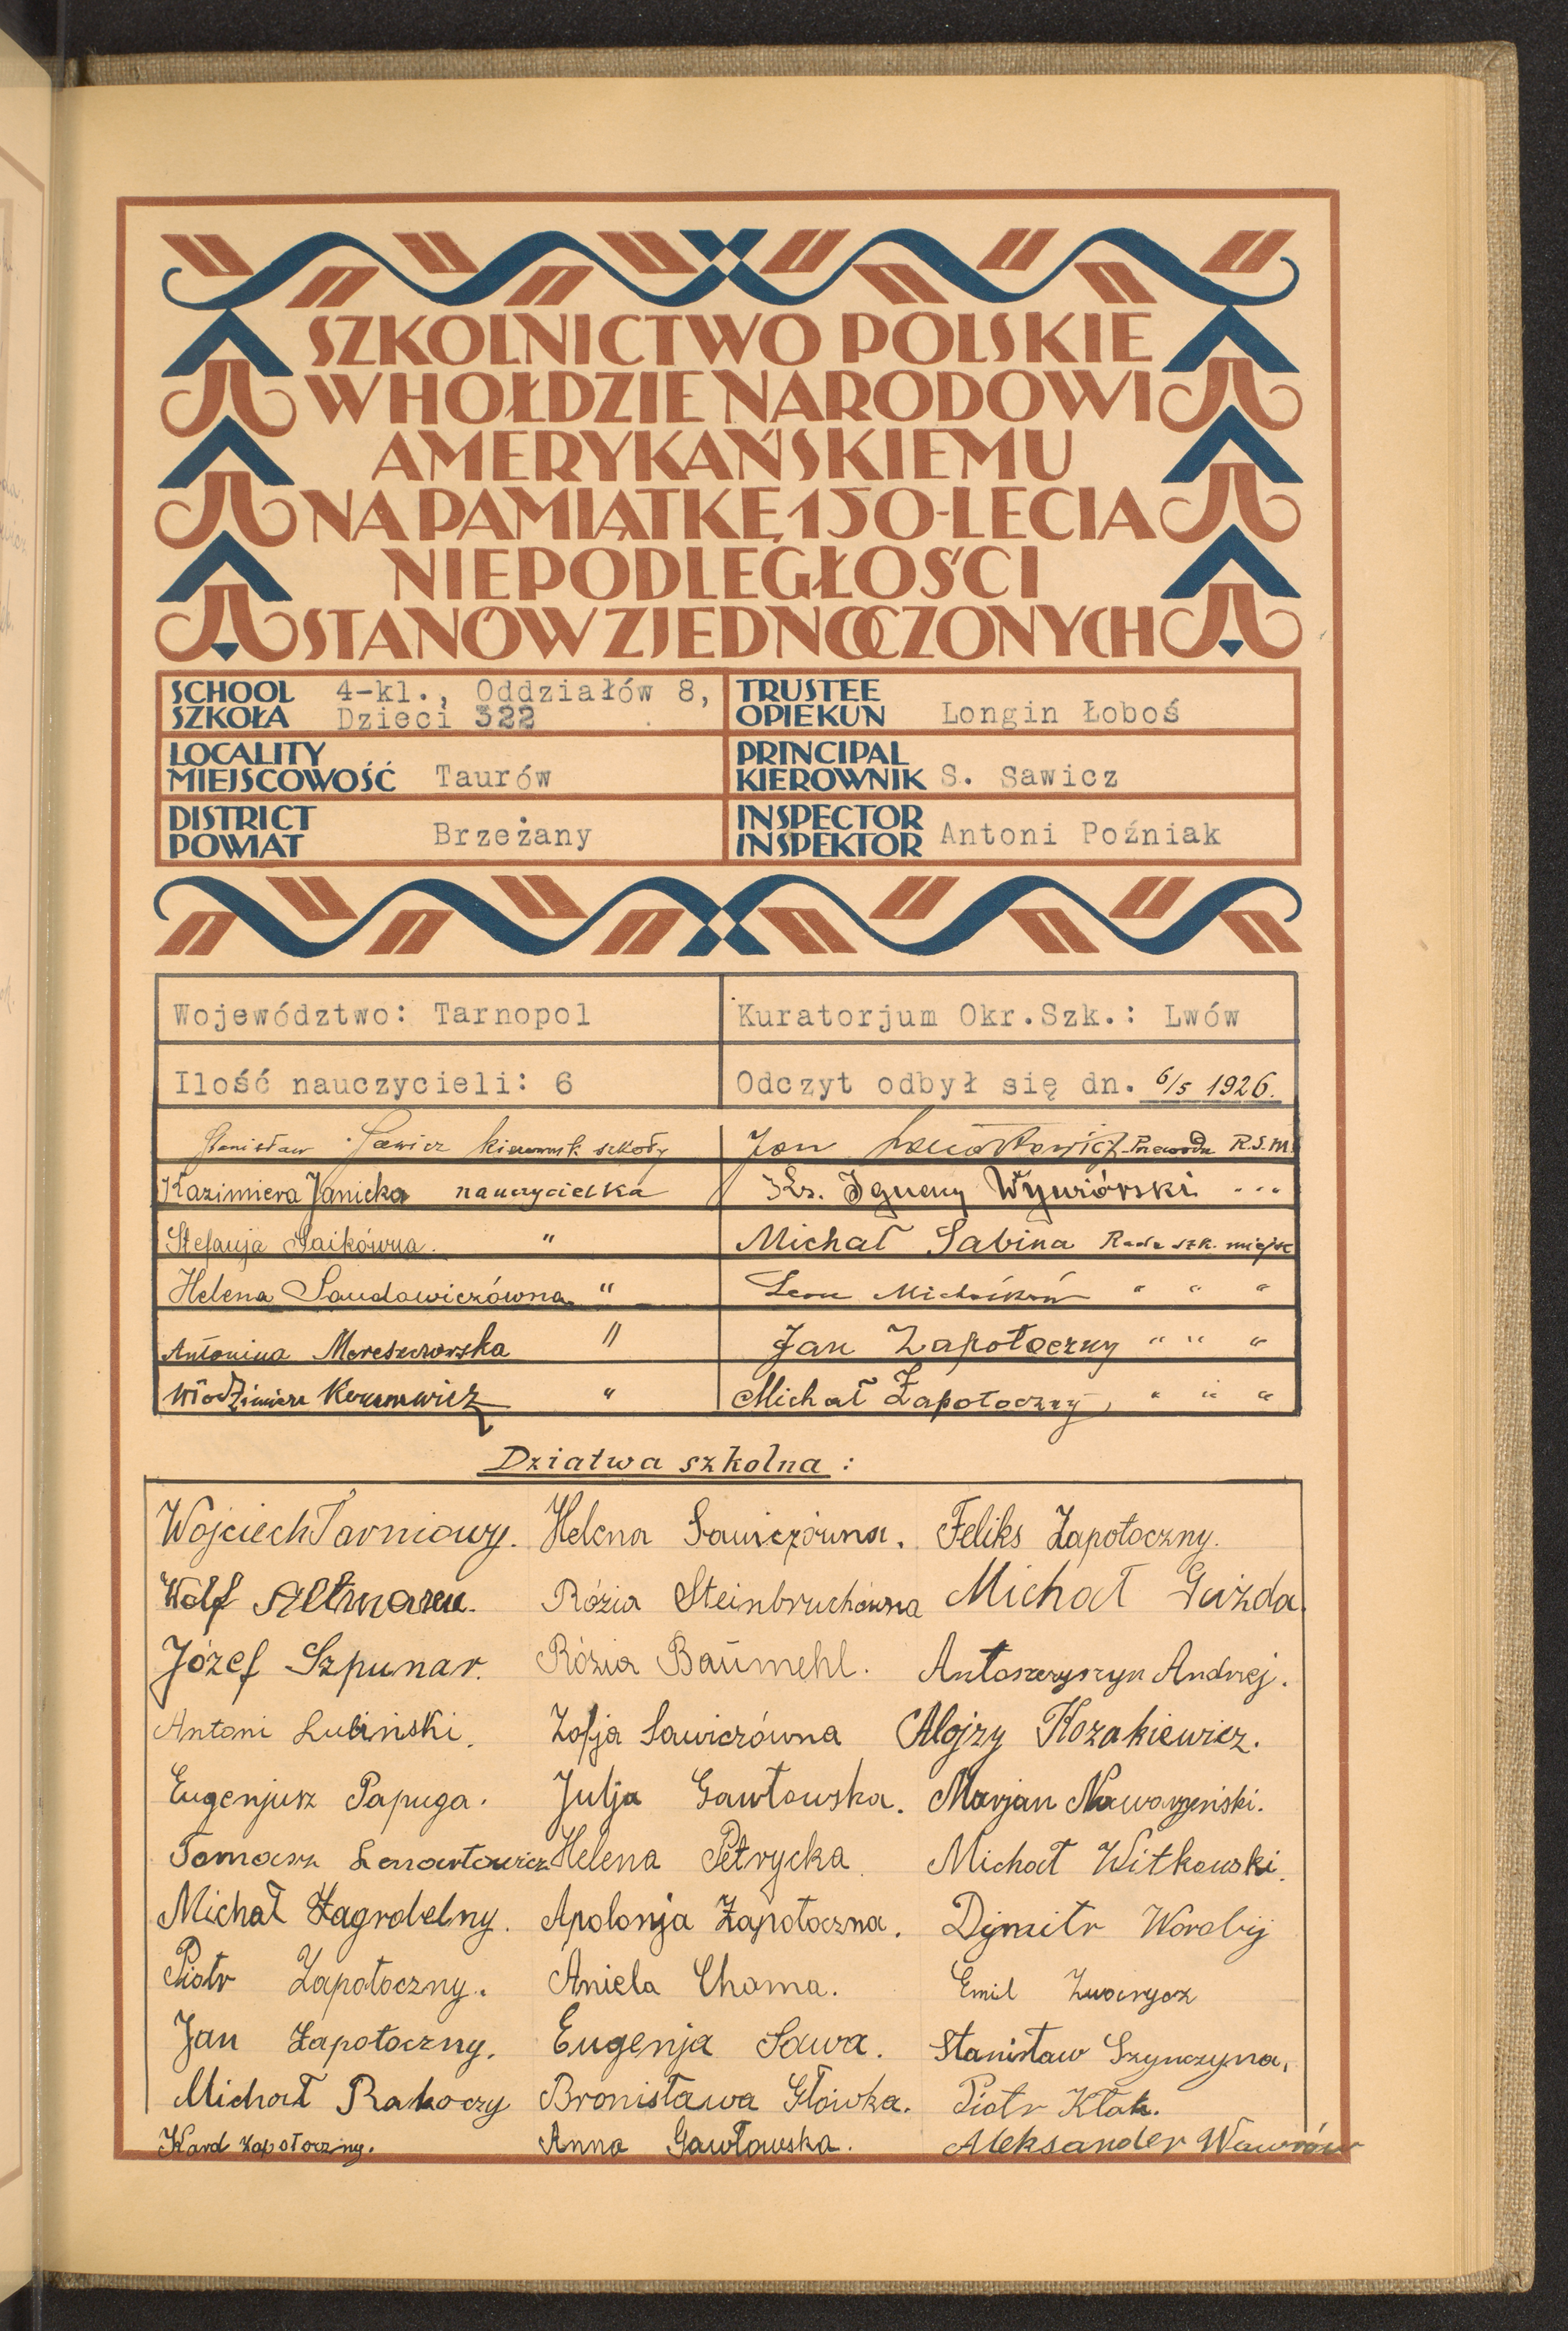 SZKOLNICTWO POLSKIE
W HOŁDZIE NARODOWI
AMERYKAŃSKIEMU
NA PAMIĄTKĘ 150-LECIA
NIEPODLEGŁOŚCI
STANÓW ZJEDNOCZONYCH
SCHOOL
SZKOŁA
4-kl., Oddziałów 8,
Dzieci 322
TRUSTEE
OPIEKUN Longin Łoboś
LOCALITY
MIEJSCOWOŚĆ Taurów
PRINCIPAL
KIEROWNIK S. Sawicz
DISTRICT
POWIAT Brzeżany
INSPECTOR
INSPEKTOR Antoni Poźniak
Województwo: Tarnopol
Kuratorjum Okr.Szk.: Lwów
Ilość nauczycieli: 6
Odczyt odbył się dn. 6/5 1926.
Stanisław Sawicz kierownik szkoły
Jan R.S.M.
Kazimiera Janicka nauczycielka
Ks. Ignacy
Stefanja Gaikówna. "
Michał Sabina Rada szk. miejsc
Helena "
Leon " " "
Antonina "
Jan Zapołoczny " " "
Włodzimierz "
Michał Zapołoczny " " "
Dziatwa szkolna :
Wojciech Tarniowy. Helena Sawiczówna. Feliks Zapołoczny.
Wolf Rózia Steinbruchówna Michał Gużda.
Józef Szpunar. Rózia Baumehl. Antoszczyszyn Andrzej.
Antoni Lubinski. Zofja Sawiczówna Alojzy Kozakiewicz.
Eugenjusz Papuga. Julja Gawłowska. Marjan
Tomasz Lenartowicz Helena Petrycka Michał Witkowski.
Michał Zagrobelny. Apolonja Zapołoczna. Dymitr Worobij
Piotr Zapołoczny. Aniela Choma. Emil
Jan Zapołoczny. Eugenja Sawa. Stanisław
Michał Rakoczy Bronisława Główka. Piotr Kłak.
Karol Zapołoczny. Anna Gawłowska. Aleksander Wawrów